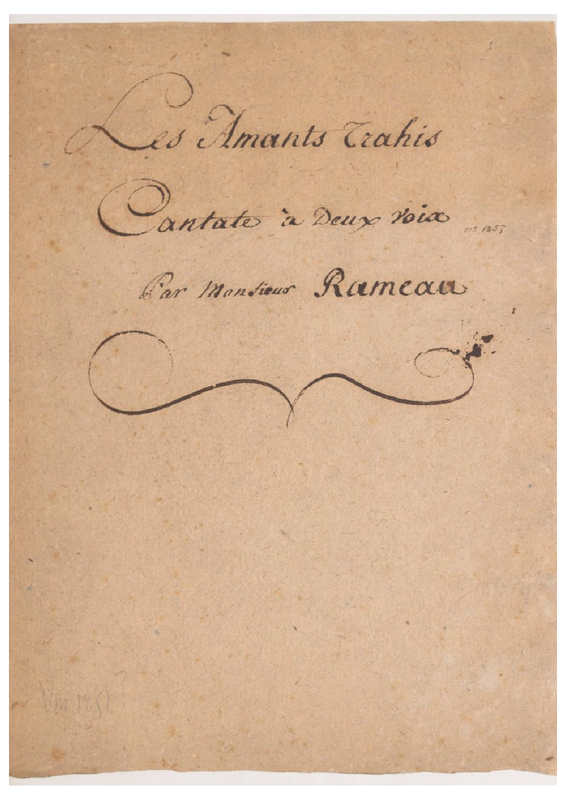 Les Amants Trahis
Cantate à Deux Voix
Par Monsieur Rameau